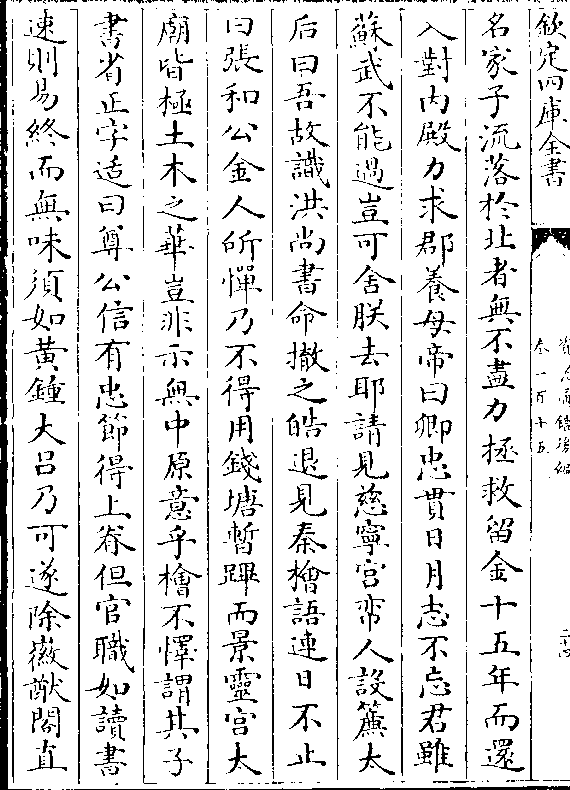 欽定四庫全書
卷一百十五
名家子流落於北者無不盡力拯救留金十五年而還
入對内殿力求郡養母帝曰卿忠貫日月志不忘君雖
蘇武不能過豈可舍朕去耶請見慈寧宫帝人設簾太
后曰吾故識洪尚書命撤之皓退見秦檜語連日不止
曰張和公金人所憚乃不得用錢塘暫蹕而景靈宫太
廟皆極土木之華豈非示無中原意乎檜不懌謂其子
書省正字适曰尊公信有忠節得上眷但官職如讀書
速則易終而無味須如黄鍾大吕乃可遂除徽猷閣直